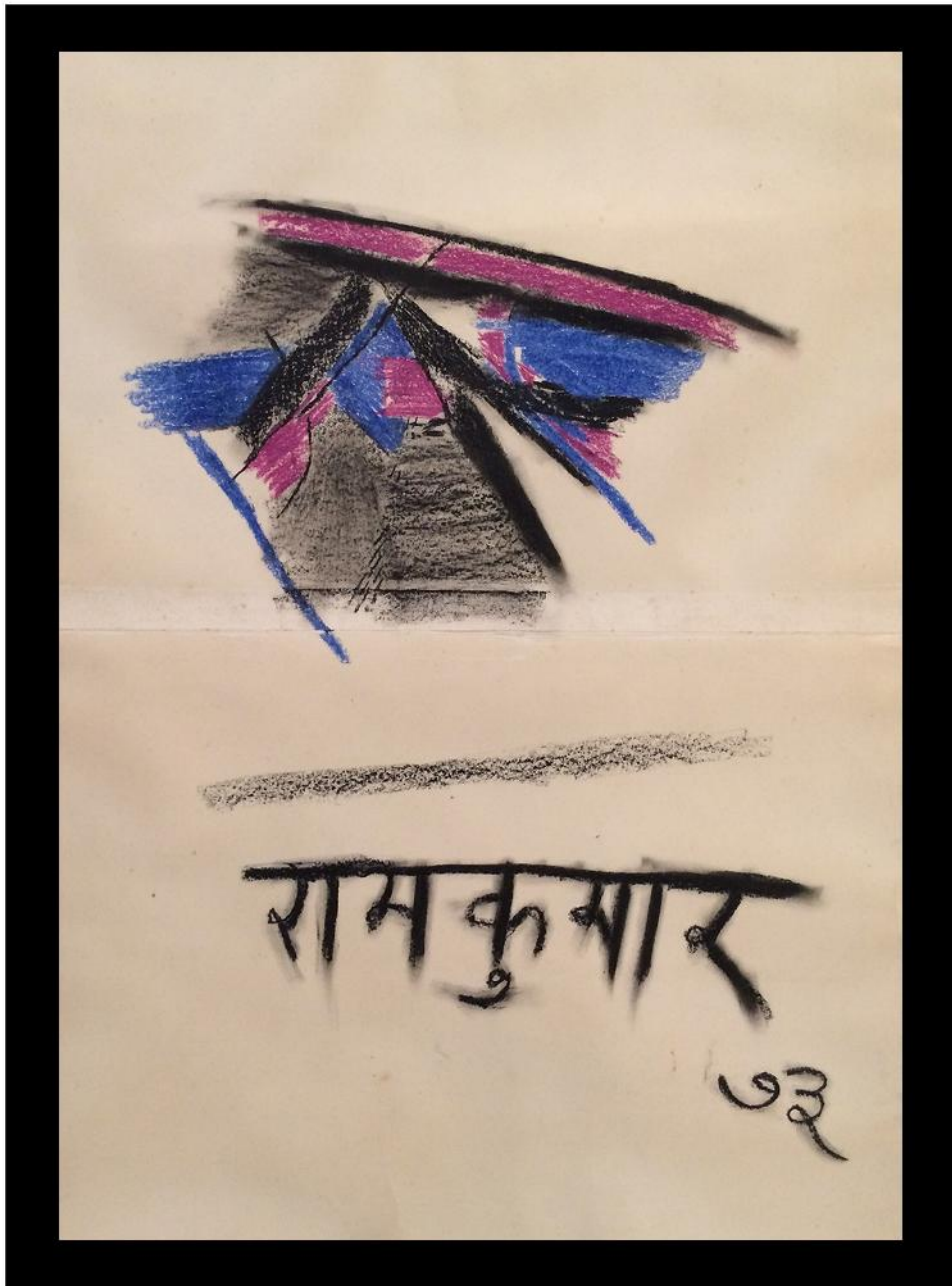 रामकुमार
७३